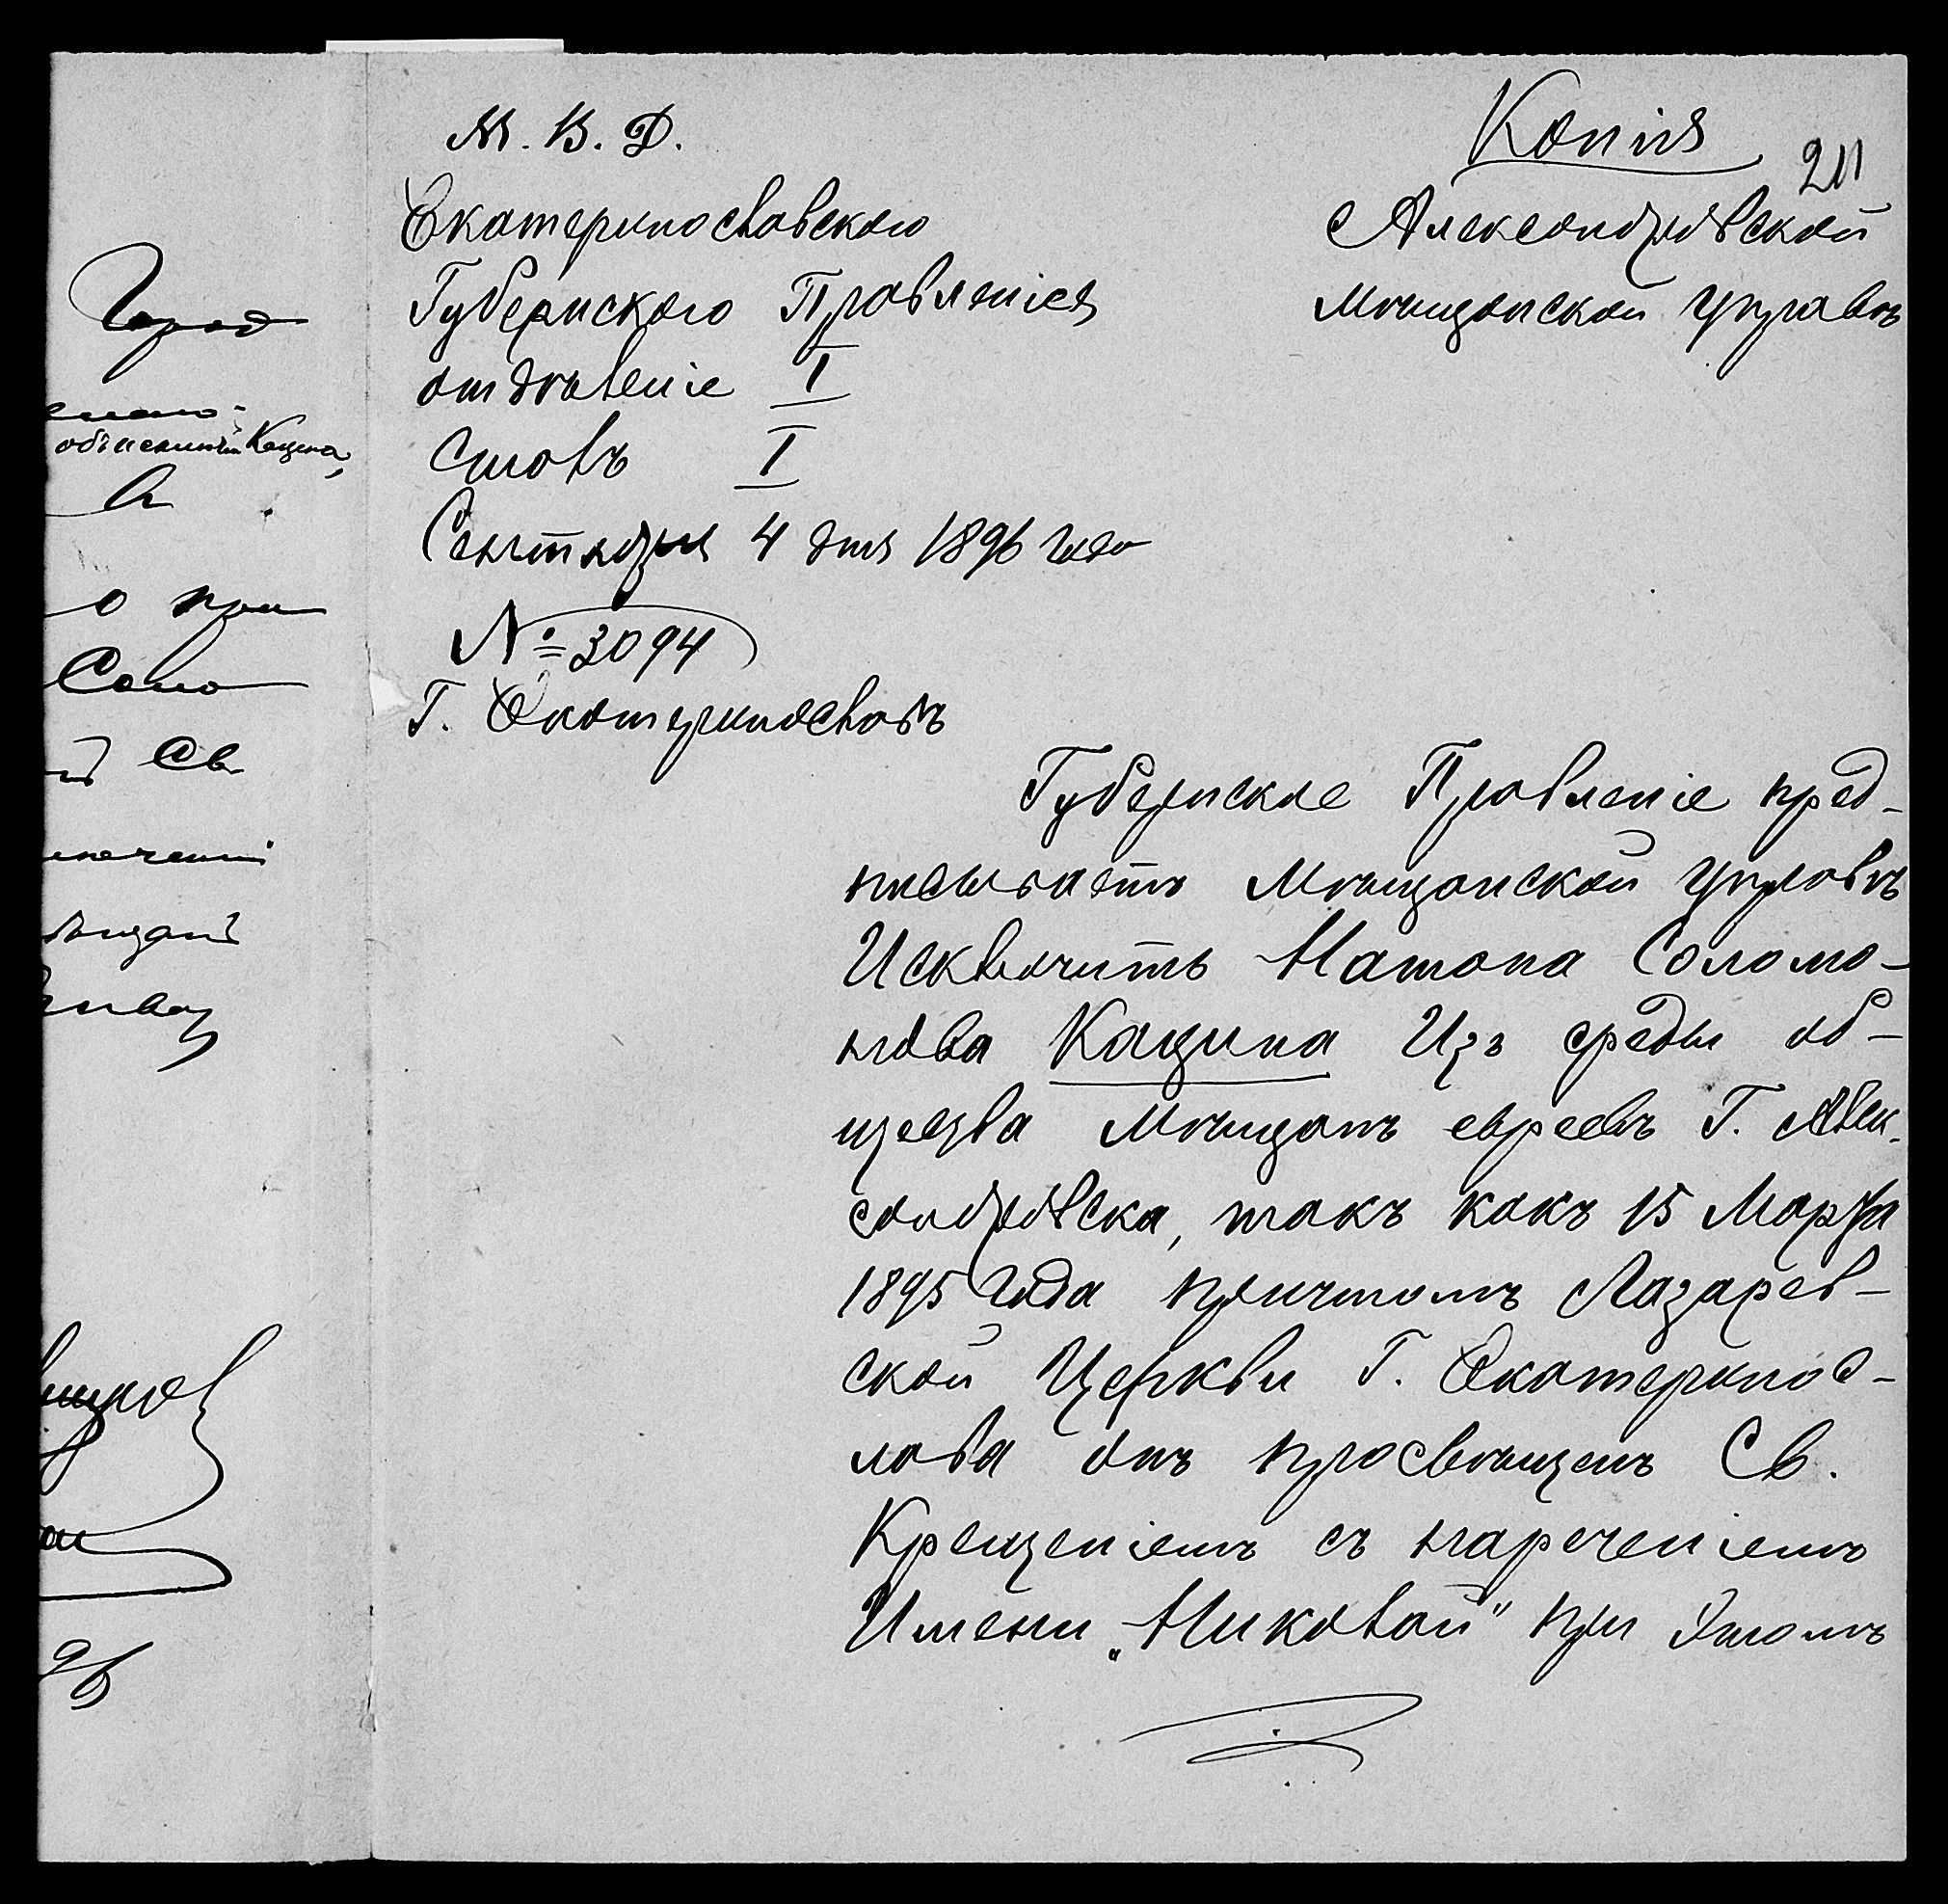 Копія
211
М. В. Д.
Екатеринославского
Губернского Правленія
отдѣленіе I
Столъ I
Сентября 4 дня 1896 года
№ 3094
Г. Екатеринославъ
Александровской
Мѣщанской Управѣ
Губернское Правленіе пред-
писываетъ Мѣщанской Управѣ
Исключить Натана Соломо-
нова Кацина Изъ среды об-
щества Мѣщанъ евреевъ Г. Алек-
сандровска, такъ какъ 15 Марта
1895 Года причтомъ Лазарев-
ской Церкви Г. Екатеринос-
лава онъ просвѣщенъ Св.
Крещеніемъ съ нареченіемъ
Имени „Николай" при Этомъ
Город
Кацина,
о при
Соло
Св
96